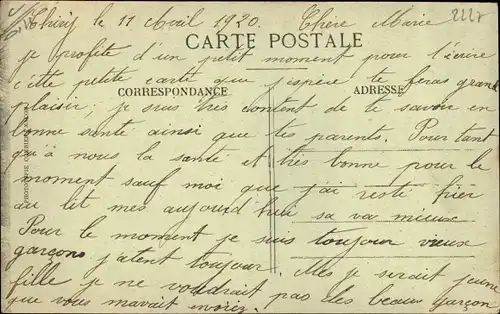 Thisy le 11 Avril 1920. Chère Marie
2227
CARTE POSTALE
je profite d'un petit moment pour t'écrire
cette petite carte que j'espère te feras grand
CORRESPONDANCE ADRESSE
plaisir; je suis très content de te savoir en
bonne santé ainsi que tes parents. Pour tant
qu'à nous la santé et très bonne pour le
moment sauf moi que j'ai resté hier
au lit mes aujourd'hui sa va mieux
Pour le moment je suis toujour vieux
garçons j'atent toujour. Mes je serait jeune
fille je ne voudrait pas des beaux garçon
que vous mavait envoiez.